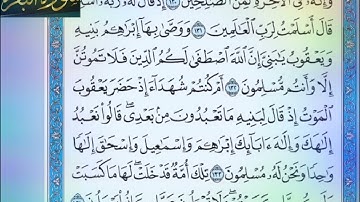 قَالَ أَسْلَمْتُ لِرَبِّ ٱلْعَٰلَمِينَ ١٣١ وَوَصَّىٰ بِهَآ إِبْرَٰهِۦمُ بَنِيهِ
وَيَعْقُوبُ يَٰبَنِىَّ إِنَّ ٱللَّهَ ٱصْطَفَىٰ لَكُمُ ٱلدِّينَ فَلَا تَمُوتُنَّ
إِلَّا وَأَنتُم مُّسْلِمُونَ ١٣٢ أَمْ كُنتُمْ شُهَدَآءَ إِذْ حَضَرَ يَعْقُوبَ
ٱلْمَوْتُ إِذْ قَالَ لِبَنِيهِ مَا تَعْبُدُونَ مِنۢ بَعْدِى قَالُوا۟ نَعْبُدُ
إِلَٰهَكَ وَإِلَٰهَ ءَابَآئِكَ إِبْرَٰهِۦمَ وَإِسْمَٰعِيلَ وَإِسْحَٰقَ إِلَٰهًا
وَٰحِدًا وَنَحْنُ لَهُۥ مُسْلِمُونَ ١٣٣ تِلْكَ أُمَّةٌ قَدْ خَلَتْ لَهَا مَا كَسَبَتْ